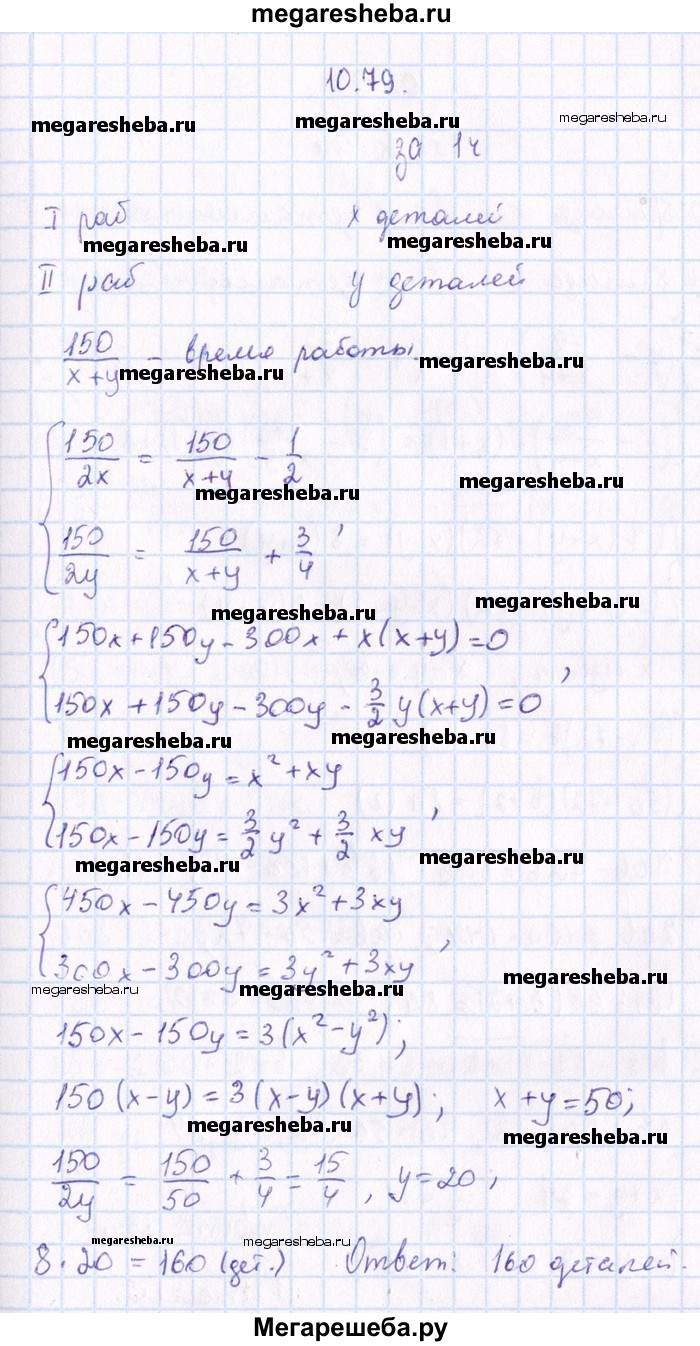 megaresheba.ru
10.79.
megaresheba.ru megaresheba.ru megaresheba.ru
за 1ч
I раб x деталей
megaresheba.ru megaresheba.ru
II раб y деталей
150/(x+y) - время работы.
megaresheba.ru megaresheba.ru
{ 150/2x = 150/(x+y) - 1/2
megaresheba.ru megaresheba.ru
150/2y = 150/(x+y) + 3/4 ,
megaresheba.ru megaresheba.ru
{ 150x+150y-300x+x(x+y)=0
150x+150y-300y-3/2 y(x+y)=0 ,
megaresheba.ru megaresheba.ru
{ 150x-150y=x²+xy
150x-150y=3/2 y²+3/2 xy ,
megaresheba.ru megaresheba.ru
{ 450x-450y=3x²+3xy
300x-300y=3y²+3xy ,
megaresheba.ru megaresheba.ru megaresheba.ru
150x-150y=3(x²-y²);
150(x-y)=3(x-y)(x+y); x+y=50;
megaresheba.ru megaresheba.ru
150/2y = 150/50 + 3/4 = 15/4 , y=20;
megaresheba.ru megaresheba.ru megaresheba.ru
8·20=160 (дет.) Ответ: 160 деталей.
Мегарешеба.ру